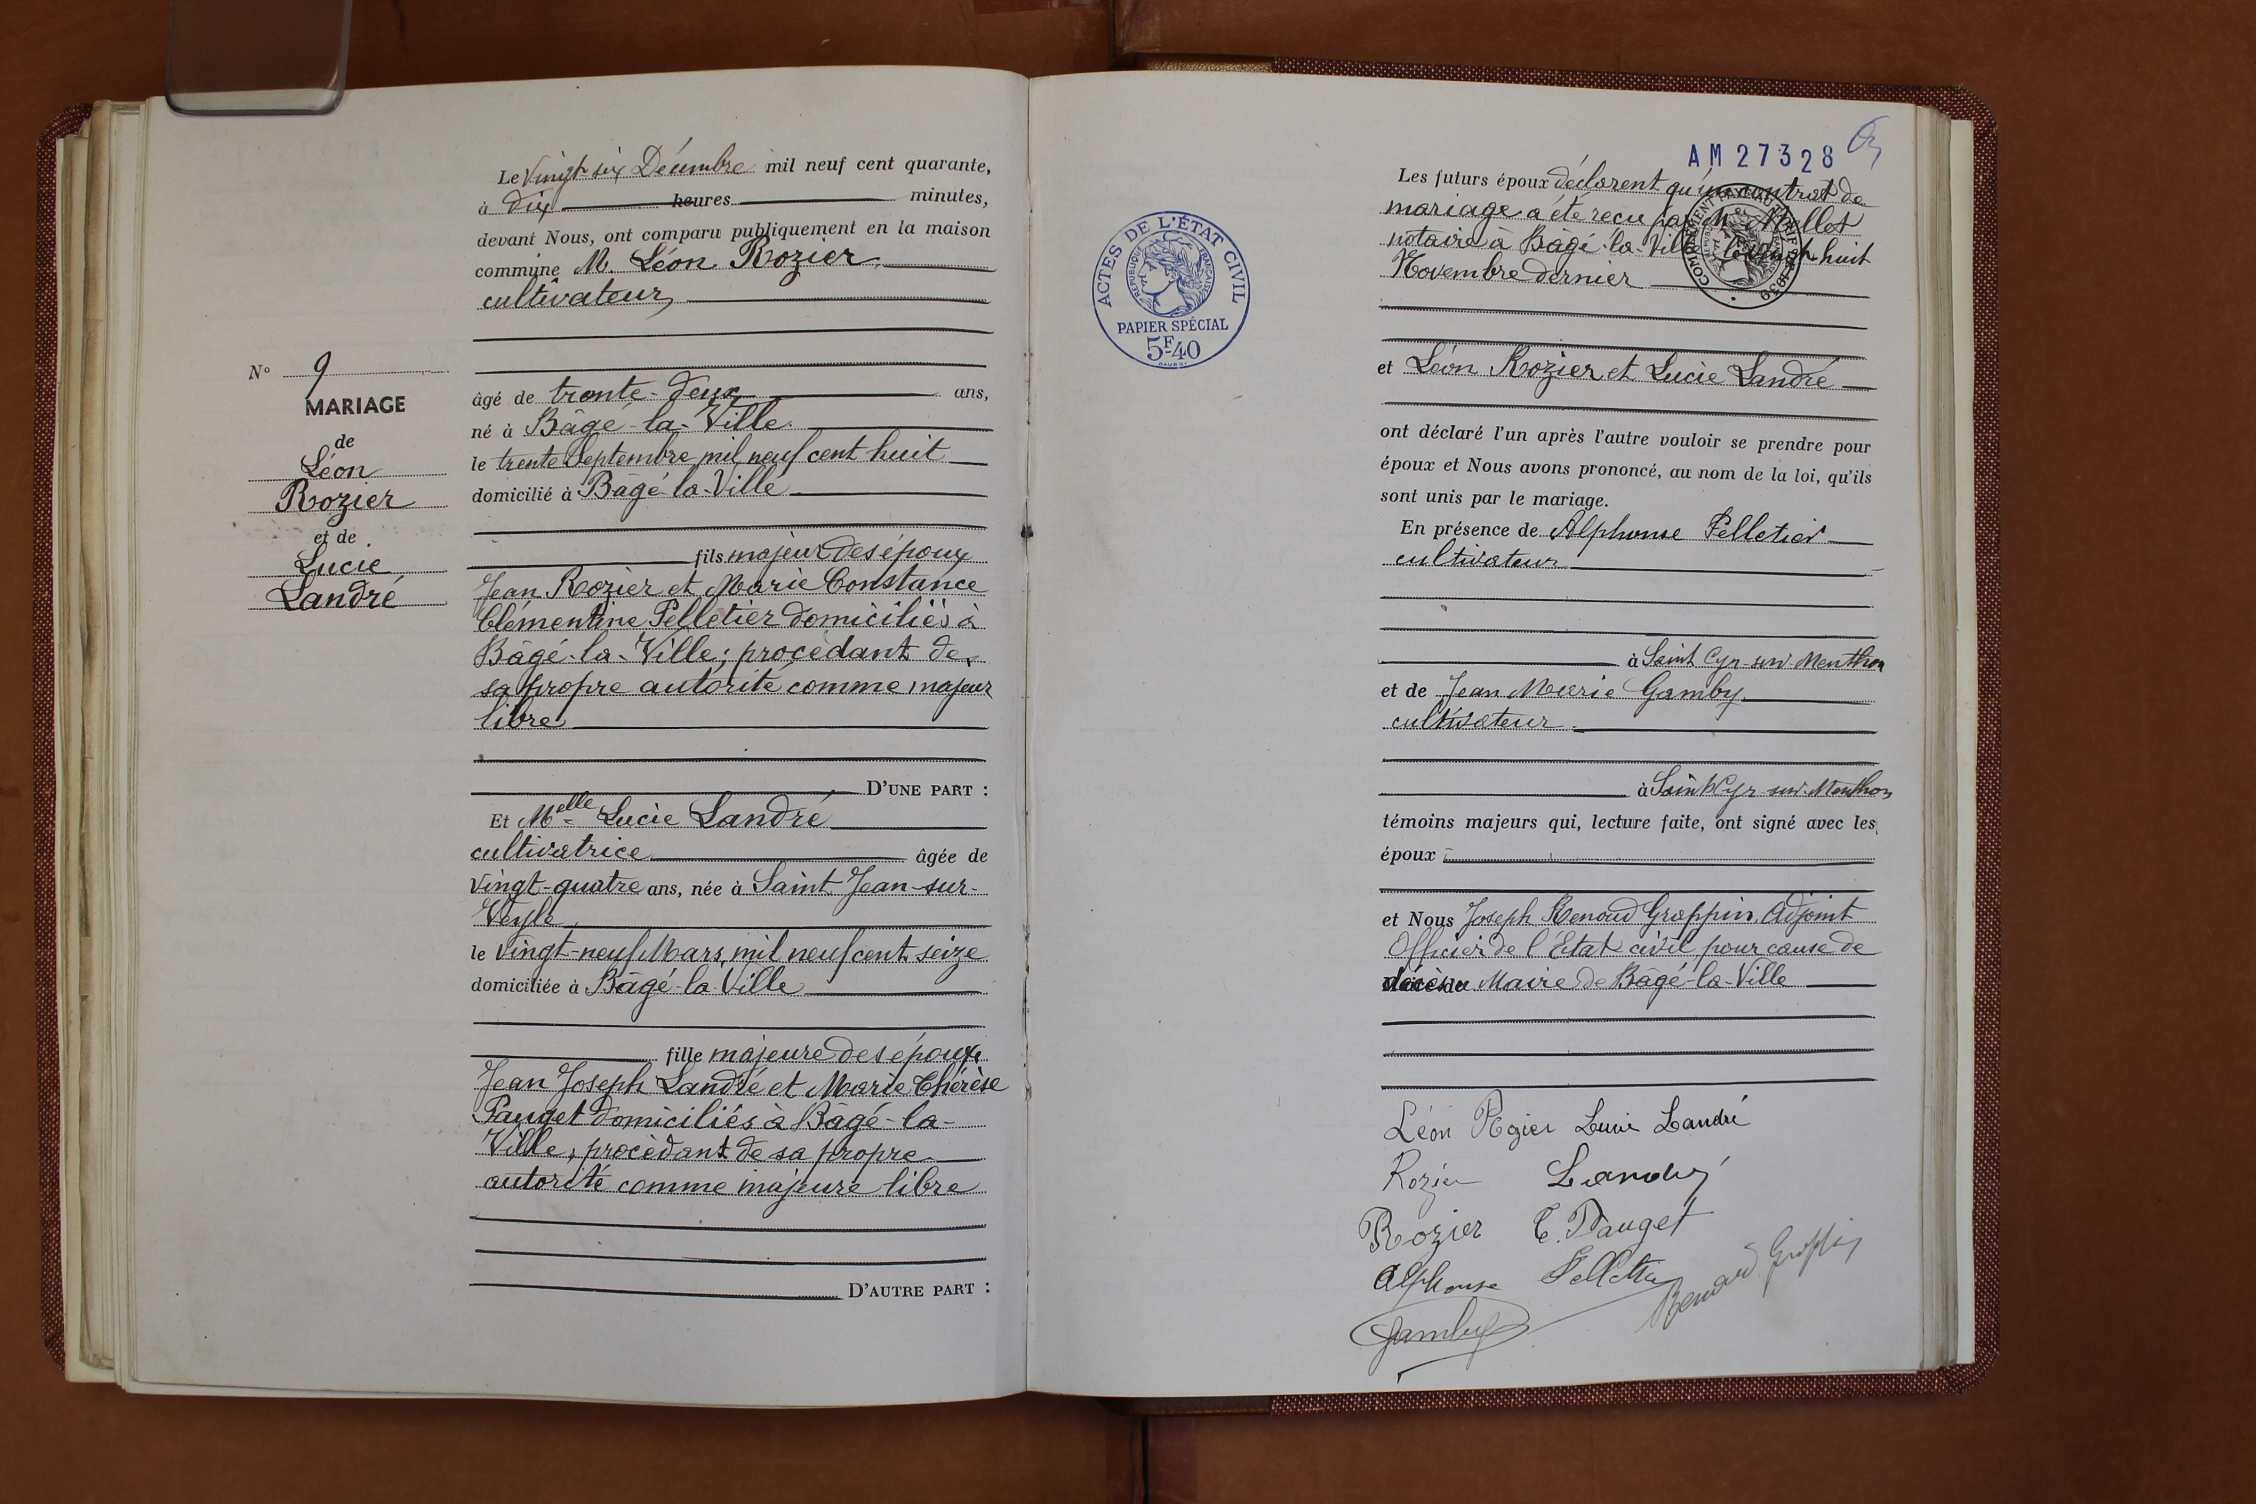 N° 9
MARIAGE
de
Léon
Rozier
et de
Lucie
Landré
Le vingt six Décembre mil neuf cent quarante,
à dix heures minutes,
devant Nous, ont comparu publiquement en la maison
commune M. Léon Rozier
cultivateur,
âgé de trente-deux ans,
né à Bâgé-la-Ville
le trente Septembre mil neuf cent huit
domicilié à Bâgé-la-Ville
fils majeur des époux
Jean Rozier et Marie Constance
Clémentine Pelletier domiciliés à
Bâgé-la-Ville; procédant de
sa propre autorité comme majeur
libre
D'UNE PART :
Et Melle Lucie Landré
cultivatrice âgée de
vingt-quatre ans, née à Saint Jean-sur-
Veyle
le vingt-neuf Mars mil neuf cent seize
domiciliée à Bâgé-la-Ville
fille majeure des époux
Jean Joseph Landré et Marie Thérèse
Pauget domiciliés à Bâgé-la-
Ville, procédant de sa propre
autorité comme majeure libre
D'AUTRE PART :
AM 27328
ACTES DE L'ÉTAT CIVIL
RÉPUBLIQUE FRANÇAISE
PAPIER SPÉCIAL
5F40
Les futurs époux déclarent qu'un contrat de
mariage a été reçu par Me
notaire à Bâgé-la-Ville le vingt huit
Novembre dernier
et Léon Rozier et Lucie Landré
ont déclaré l'un après l'autre vouloir se prendre pour
époux et Nous avons prononcé, au nom de la loi, qu'ils
sont unis par le mariage.
En présence de Alphonse Pelletier
cultivateur
à Saint Cyr-sur-Menthon
et de Jean Marie Gamby
cultivateur
à Saint Cyr-sur-Menthon
témoins majeurs qui, lecture faite, ont signé avec les
époux
et Nous Joseph Renoud Grappin, Adjoint
Officier de l'Etat civil, pour cause de
décès du Maire de Bâgé-la-Ville
Léon Rozier Lucie Landré
Rozier Landré
Rozier T. Pauget
Alphonse Pelletier
Renoud Grappin
Gamby